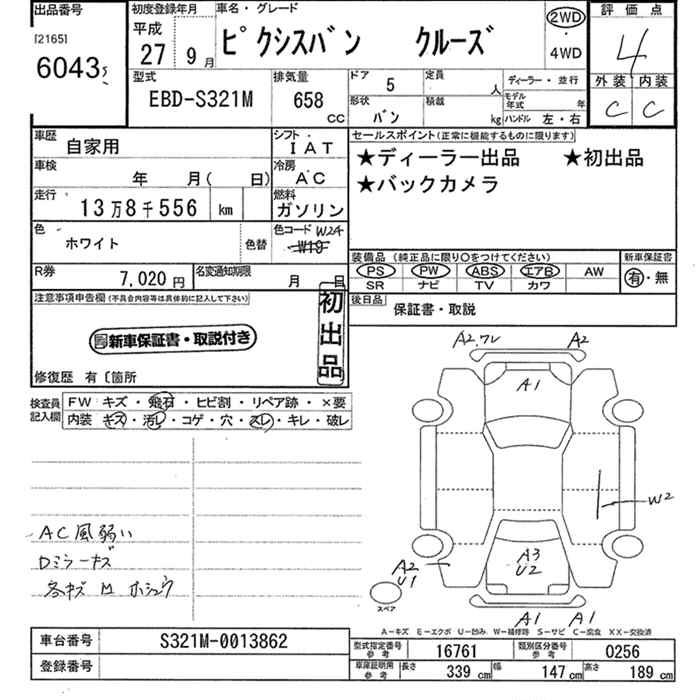 出品番号
[2165]
6043
初度登録年月
平成
27年 9月
車名・グレード
ピクシスバン クルーズ
2WD
・
4WD
評価点
4
外装 内装
C C
型式
EBD-S321M
排気量
658
CC
ドア 5
形状 バン
定員 人
積載 kg
ディーラー・並行
モデル年式 年
ハンドル 左・右
車歴 自家用
シフト IAT
車検 年 月( 日)
冷房 AC
走行 13万8千556 km
燃料 ガソリン
色 ホワイト 色替
色コード W24
R券 7,020円
名変通知期限 月 日
セールスポイント(正常に機能するものに限ります)
★ディーラー出品 ★初出品
★バックカメラ
装備品 (純正品に限り○をつけてください)
PS PW ABS エアB AW
SR ナビ TV カワ
新車保証書
有・無
後日品 保証書・取説
注意事項申告欄(不具合内容等は具体的に記入して下さい)
新車保証書・取説付き
初出品
修復歴 有 〔箇所
検査員記入欄
FW キズ・飛石・ヒビ割・リペア跡・×要
内装 キズ・汚レ・コゲ・穴・スレ・キレ・破レ
AC風弱い
Dミラーキズ
A2.ワレ A2
A1
W2
A3
U2
A2
U1
スペア
A1 A1
A−キズ E−エクボ U−凹み W−補修跡 S−サビ C−腐食 XX−交換済
車台番号 S321M-0013862
登録番号
型式指定番号 参考 16761
類別区分番号 参考 0256
車庫証明用 参考 長さ 339 cm 幅 147 cm 高さ 189 cm